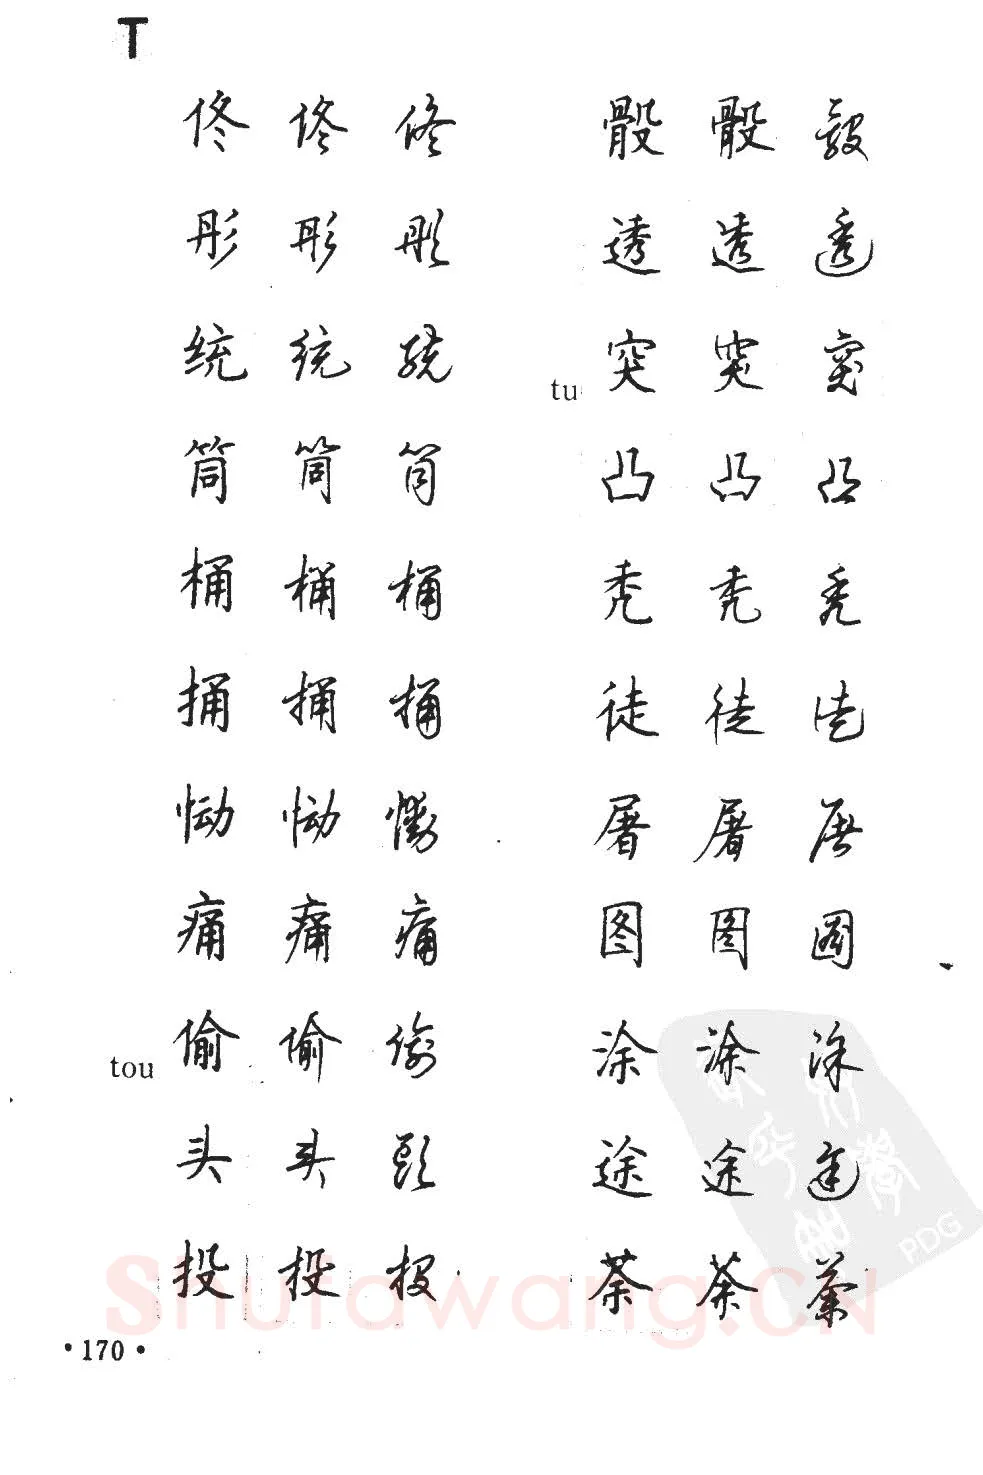 T
佟 佟 佟
彤 彤 彤
统 统 统
筒 筒 筒
桶 桶 桶
捅 捅 捅
恸 恸 慟
痛 痛 痛
tou 偷 偷 偷
头 头 頭
投 投 投
骰 骰 骰
透 透 透
tu 突 突 突
凸 凸 凸
秃 秃 秃
徒 徒 徒
屠 屠 屠
图 图 圖
涂 涂 涂
途 途 途
荼 荼 荼
·170·
Shufawang.CN
PDG